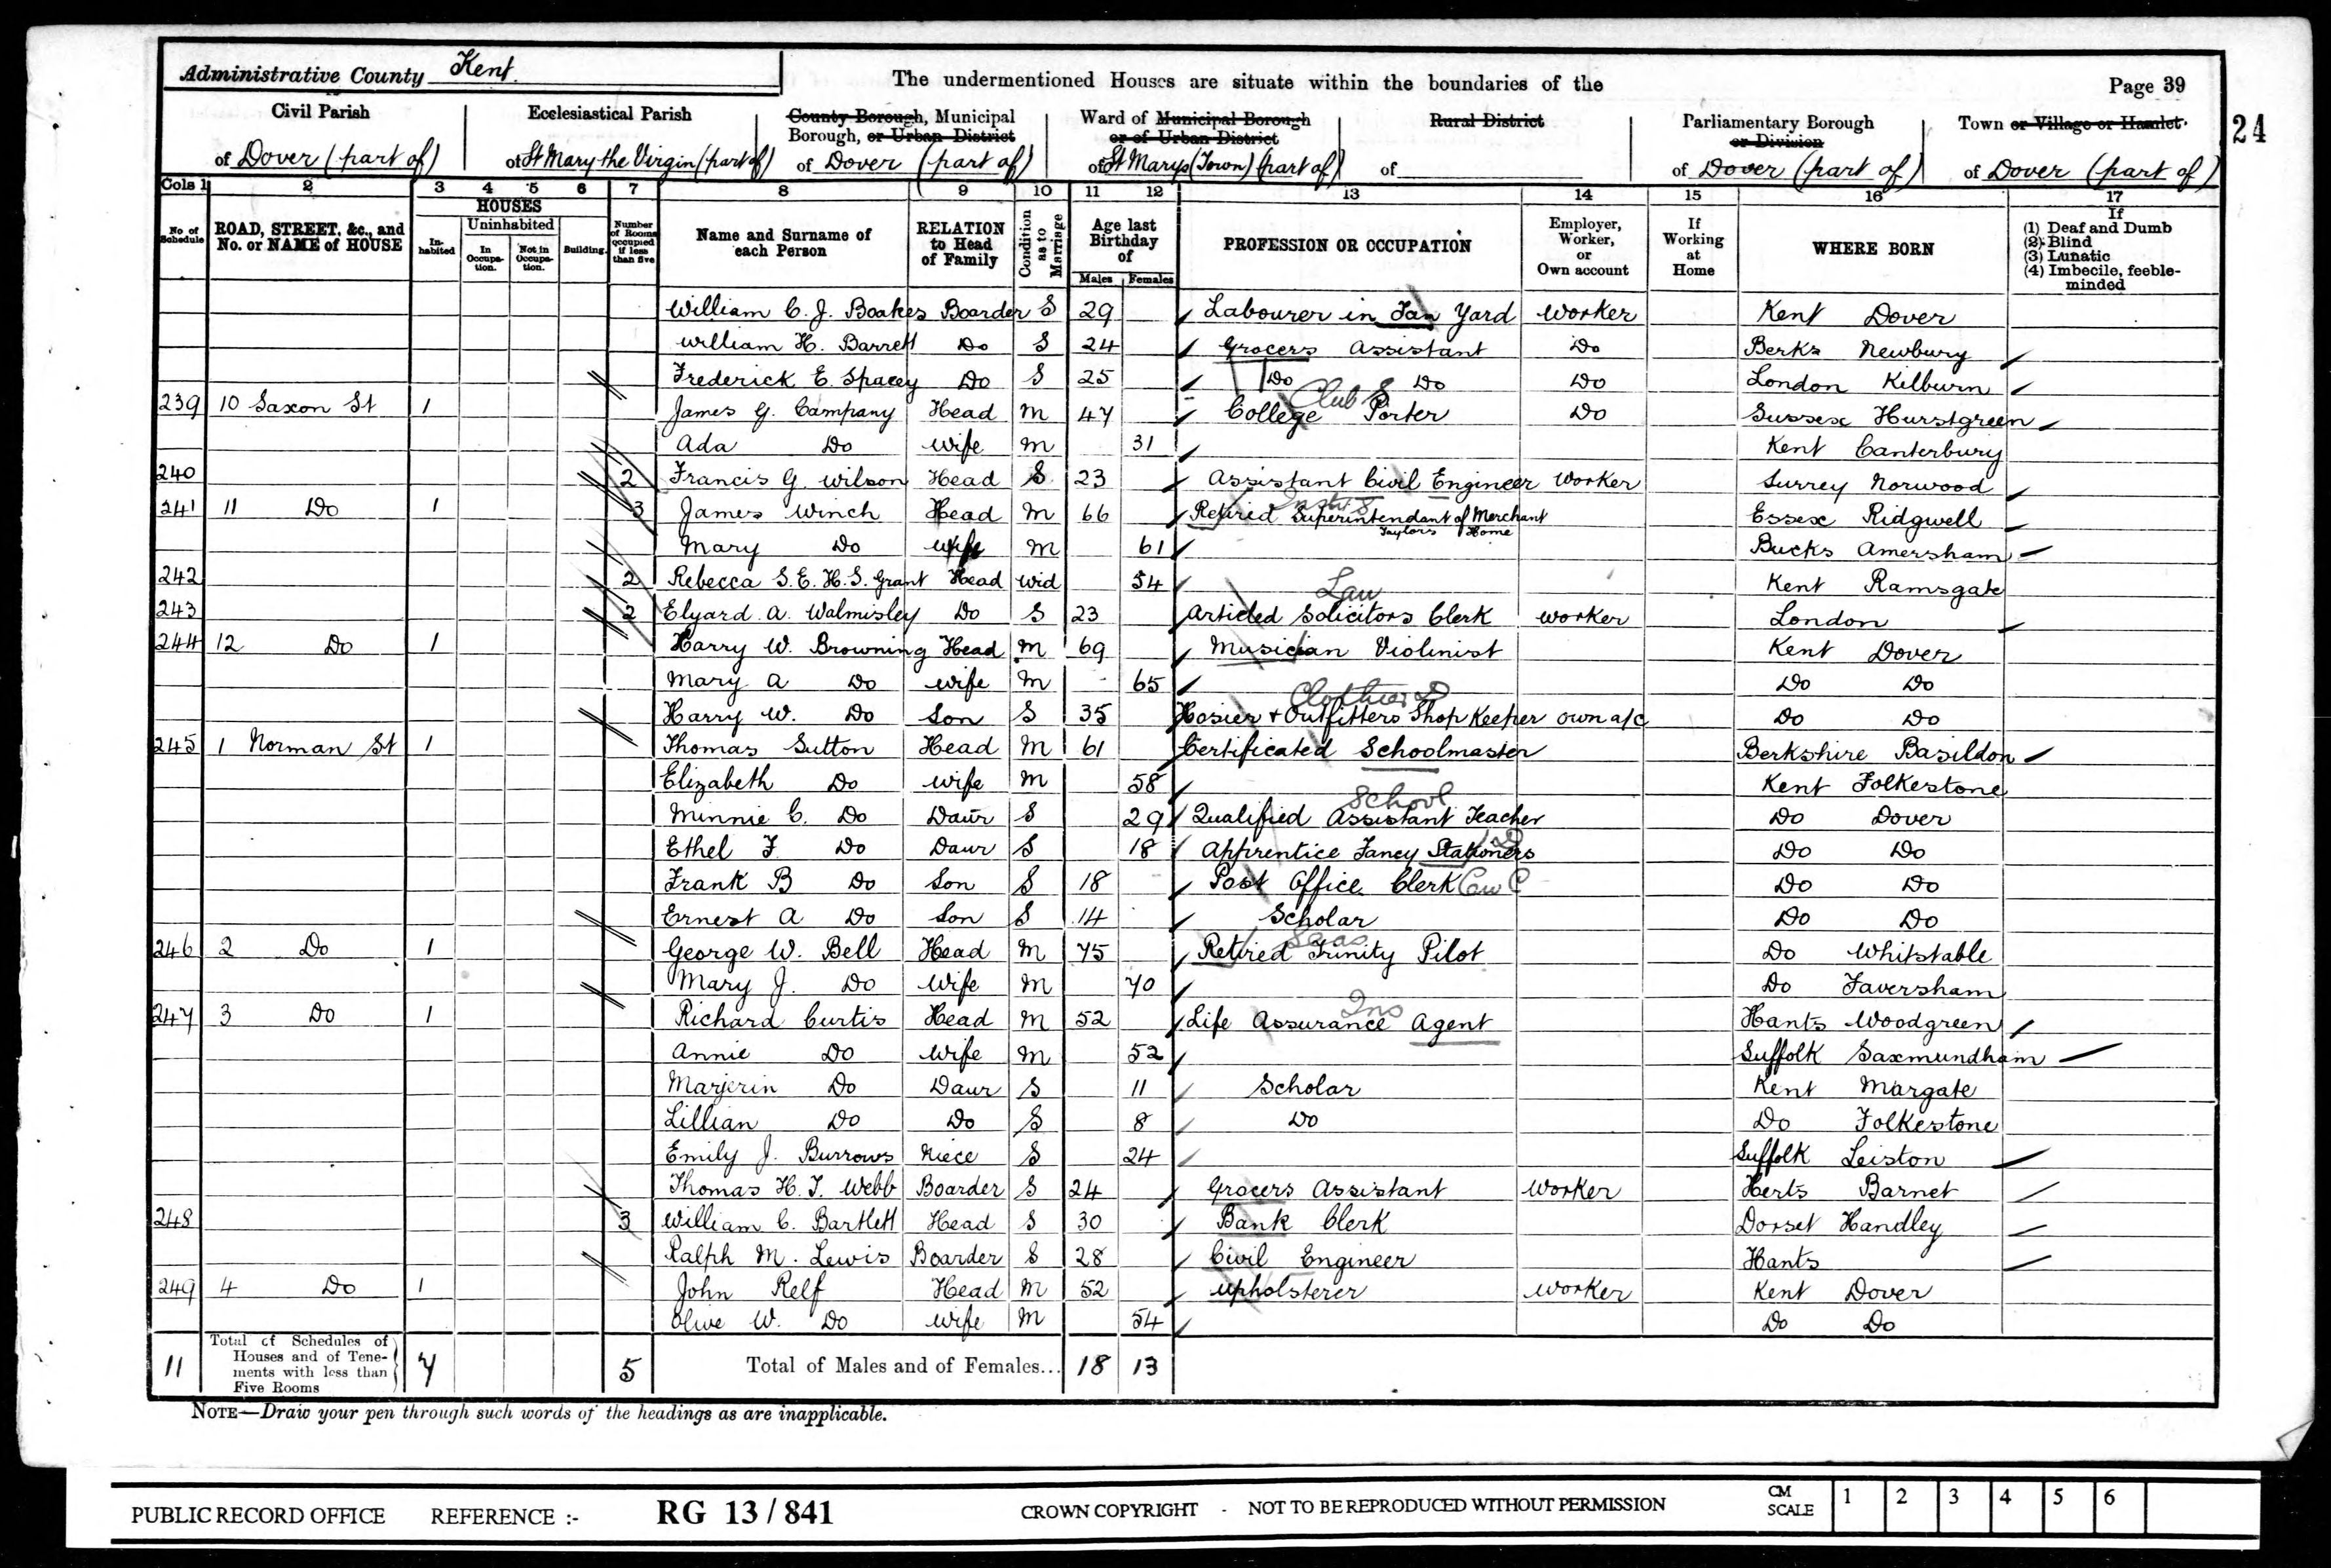 Administrative County Kent.
The undermentioned Houses are situate within the boundaries of the
Page 39
24
Civil Parish of Dover (part of)
Ecclesiastical Parish of St Mary the Virgin (part of)
County Borough, Municipal Borough, or Urban District of Dover (part of)
Ward of Municipal Borough or of Urban District of St Marys (Town) (part of)
Rural District of
Parliamentary Borough or Division of Dover (part of)
Town or Village or Hamlet of Dover (part of)
Cols 1 2 3 4 5 6 7 8 9 10 11 12 13 14 15 16 17
No of Schedule
ROAD, STREET, &c., and No. or NAME of HOUSE
HOUSES
Inhabited
Uninhabited
In Occupation.
Not in Occupation.
Building.
Number of Rooms occupied if less than five
Name and Surname of each Person
RELATION to Head of Family
Condition as to Marriage
Age last Birthday of
Males Females
PROFESSION OR OCCUPATION
Employer, Worker, or Own account
If Working at Home
WHERE BORN
If
(1) Deaf and Dumb
(2) Blind
(3) Lunatic
(4) Imbecile, feeble-minded
William C. J. Boakes Boarder S 29 Labourer in Tan Yard Worker Kent Dover
William H. Barrett Do S 24 Grocers Assistant Do Berks Newbury
Frederick E. Spacey Do S 25 Do Do Do London Kilburn
Club S
239 10 Saxon St 1 James G. Campany Head M 47 College Porter Do Sussex Hurstgreen
Ada Do Wife M 31 Kent Canterbury
240 2 Francis G. Wilson Head S 23 Assistant Civil Engineer Worker Surrey Norwood
241 11 Do 1 3 James Winch Head M 66 Retired Superintendant of Merchant Taylors Home Essex Ridgwell
Mary Do Wife M 61 Bucks Amersham
242 2 Rebecca S. E. H. S. Grant Head Wid 54 Kent Ramsgate
Law
243 2 Elyard A. Walmisley Do S 23 Articled Solicitors Clerk Worker London
244 12 Do 1 Harry W. Browning Head M 69 Musician Violinist Kent Dover
Mary A Do Wife M 65 Do Do
Clothier D
Harry W. Do Son S 35 Hosier + Outfitters Shop Keeper own a/c Do Do
245 1 Norman St 1 Thomas Sutton Head M 61 Certificated Schoolmaster Berkshire Basildon
Elizabeth Do Wife M 58 Kent Folkestone
School
Minnie C. Do Daur S 29 Qualified Assistant Teacher Do Dover
Ethel F Do Daur S 18 Apprentice Fancy Stationers Do Do
Frank B Do Son S 18 Post Office Clerk Do Do
Ernest A Do Son S 14 Scholar Do Do
246 2 Do 1 George W. Bell Head M 75 Retired Trinity Pilot Do Whitstable
Mary J. Do Wife M 70 Do Faversham
Ins
247 3 Do 1 Richard Curtis Head M 52 Life Assurance Agent Hants Woodgreen
Annie Do Wife M 52 Suffolk Saxmundham
Marjerin Do Daur S 11 Scholar Kent Margate
Lillian Do Do S 8 Do Do Folkestone
Emily J. Burrows Niece S 24 Suffolk Leiston
Thomas H. J. Webb Boarder S 24 Grocers Assistant Worker Herts Barnet
248 3 William C. Bartlett Head S 30 Bank Clerk Dorset Handley
Ralph M. Lewis Boarder S 28 Civil Engineer Hants
249 4 Do 1 John Relf Head M 52 Upholsterer Worker Kent Dover
Olive W. Do Wife M 54 Do Do
11 Total of Schedules of Houses and of Tenements with less than Five Rooms 7 5 Total of Males and of Females... 18 13
NOTE—Draw your pen through such words of the headings as are inapplicable.
PUBLIC RECORD OFFICE REFERENCE :- RG 13 / 841 CROWN COPYRIGHT - NOT TO BE REPRODUCED WITHOUT PERMISSION CM SCALE 1 2 3 4 5 6